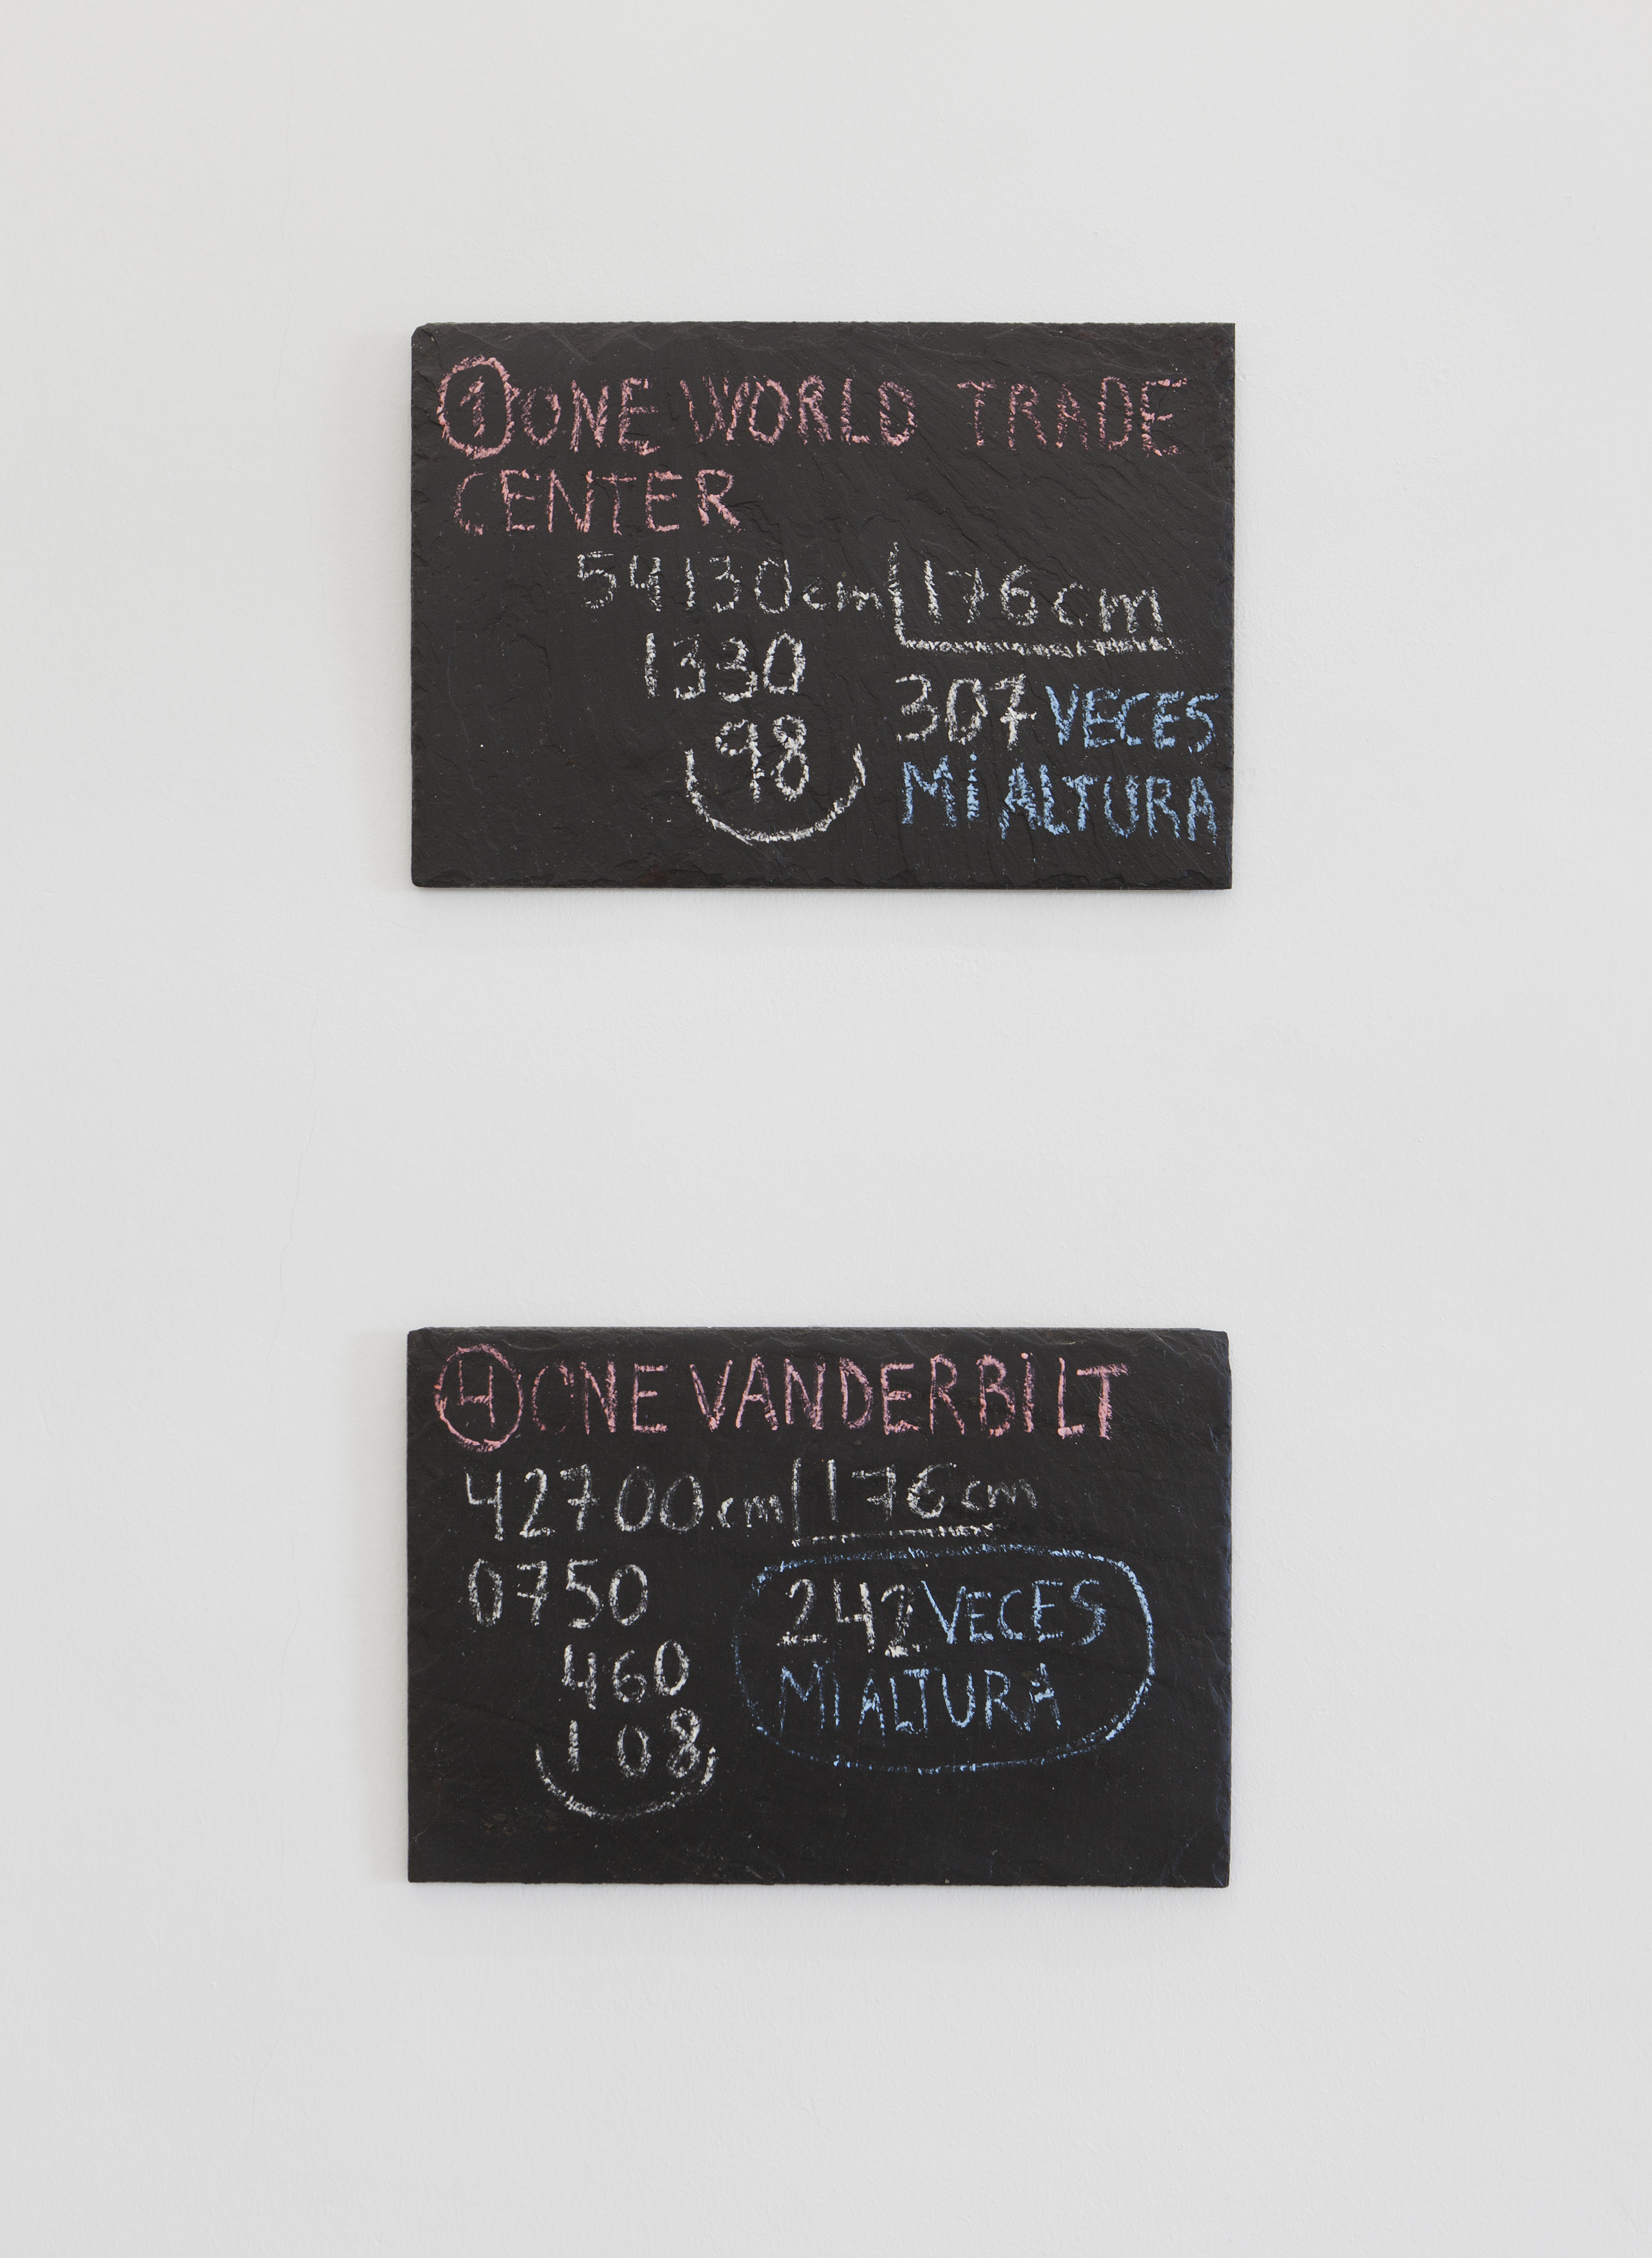 1 ONE WORLD TRADE
CENTER
54130cm 176cm
1330
307 VECES
98
MI ALTURA
4 ONE VANDERBILT
42700cm 176cm
0750
242 VECES
460
MI ALTURA
108